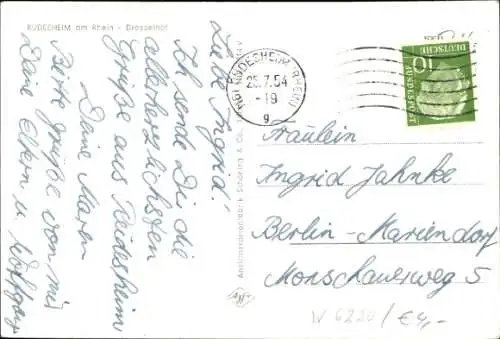 RÜDESHEIM am Rhein - Drosselhof
Liebe Ingrid!
Ich sende Dir die
allerherzlichsten
Grüße aus Rüdesheim
Deine Maren
Beste Grüße von mir
Deine Eltern u. Wolfgang
Ansichtskartenfabrik Schöning & Co.
RÜDESHEIM (RHEIN)
25.7.54
-19
g
10
DEUTSCHE
BUNDESPOST
Fräulein
Ingrid Jahnke
Berlin-Mariendorf
Monschauerweg 5
W 6220/€4,-